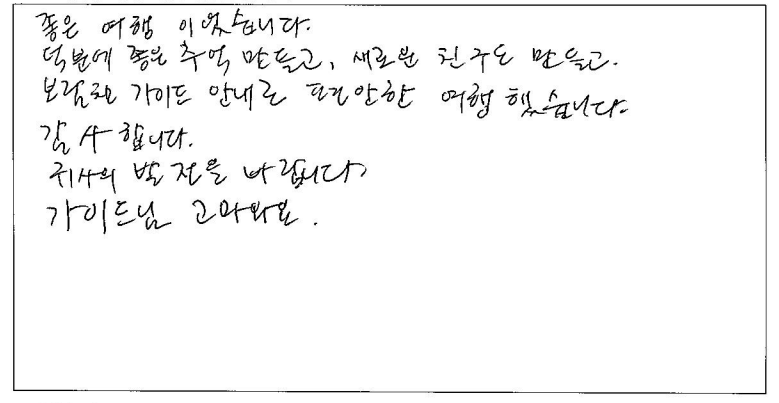 좋은 여행 이었습니다.
덕분에 좋은 추억 만들고, 새로운 친구도 만들고.
보람찬 가이드 안내로 편안한 여행 했습니다.
감사합니다.
귀사의 발전을 바랍니다
가이드님 고마와요.